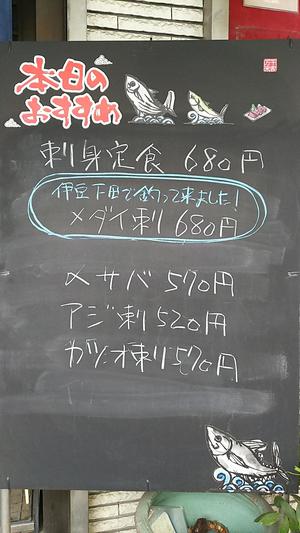 本日の
おすすめ
刺身定食 680円
伊豆下田で釣って来ました!
メダイ刺 680円
〆サバ 570円
アジ刺 520円
ガツオ刺 570円